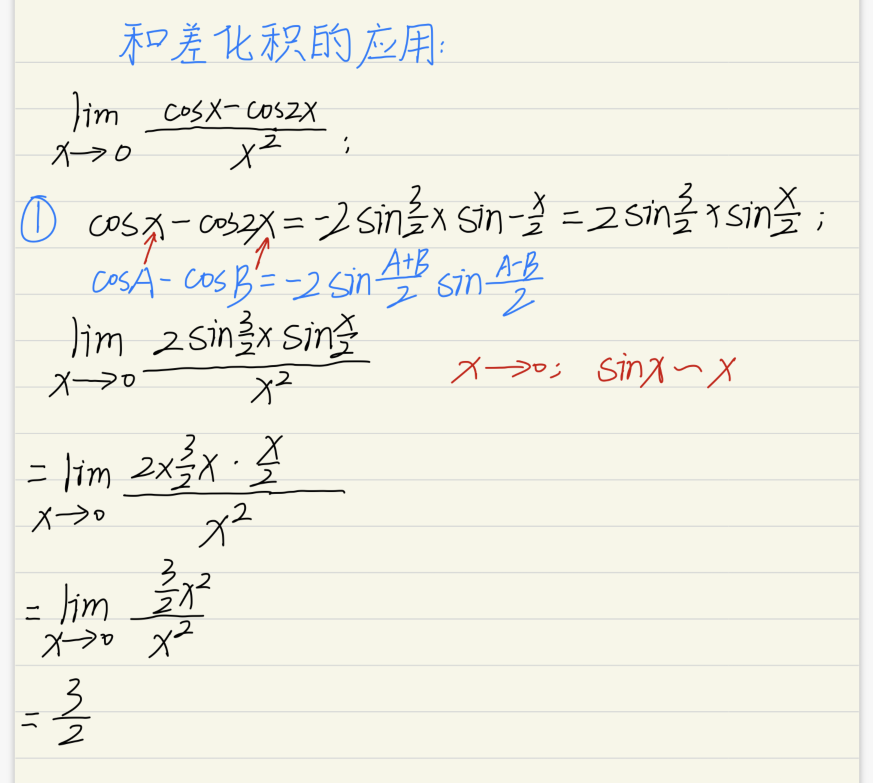 和差化积的应用:
lim x→0 (cosx-cos2x)/x² ;
① cosx-cos2x=-2sin3/2x sin-x/2=2sin3/2xsinx/2;
cosA-cosB=-2sin(A+B)/2 sin(A-B)/2
lim x→0 (2sin3/2x sinx/2)/x² x→0; sinx∽x
=lim x→0 (2×3/2x·x/2)/x²
=lim x→0 (3/2x²)/x²
=3/2